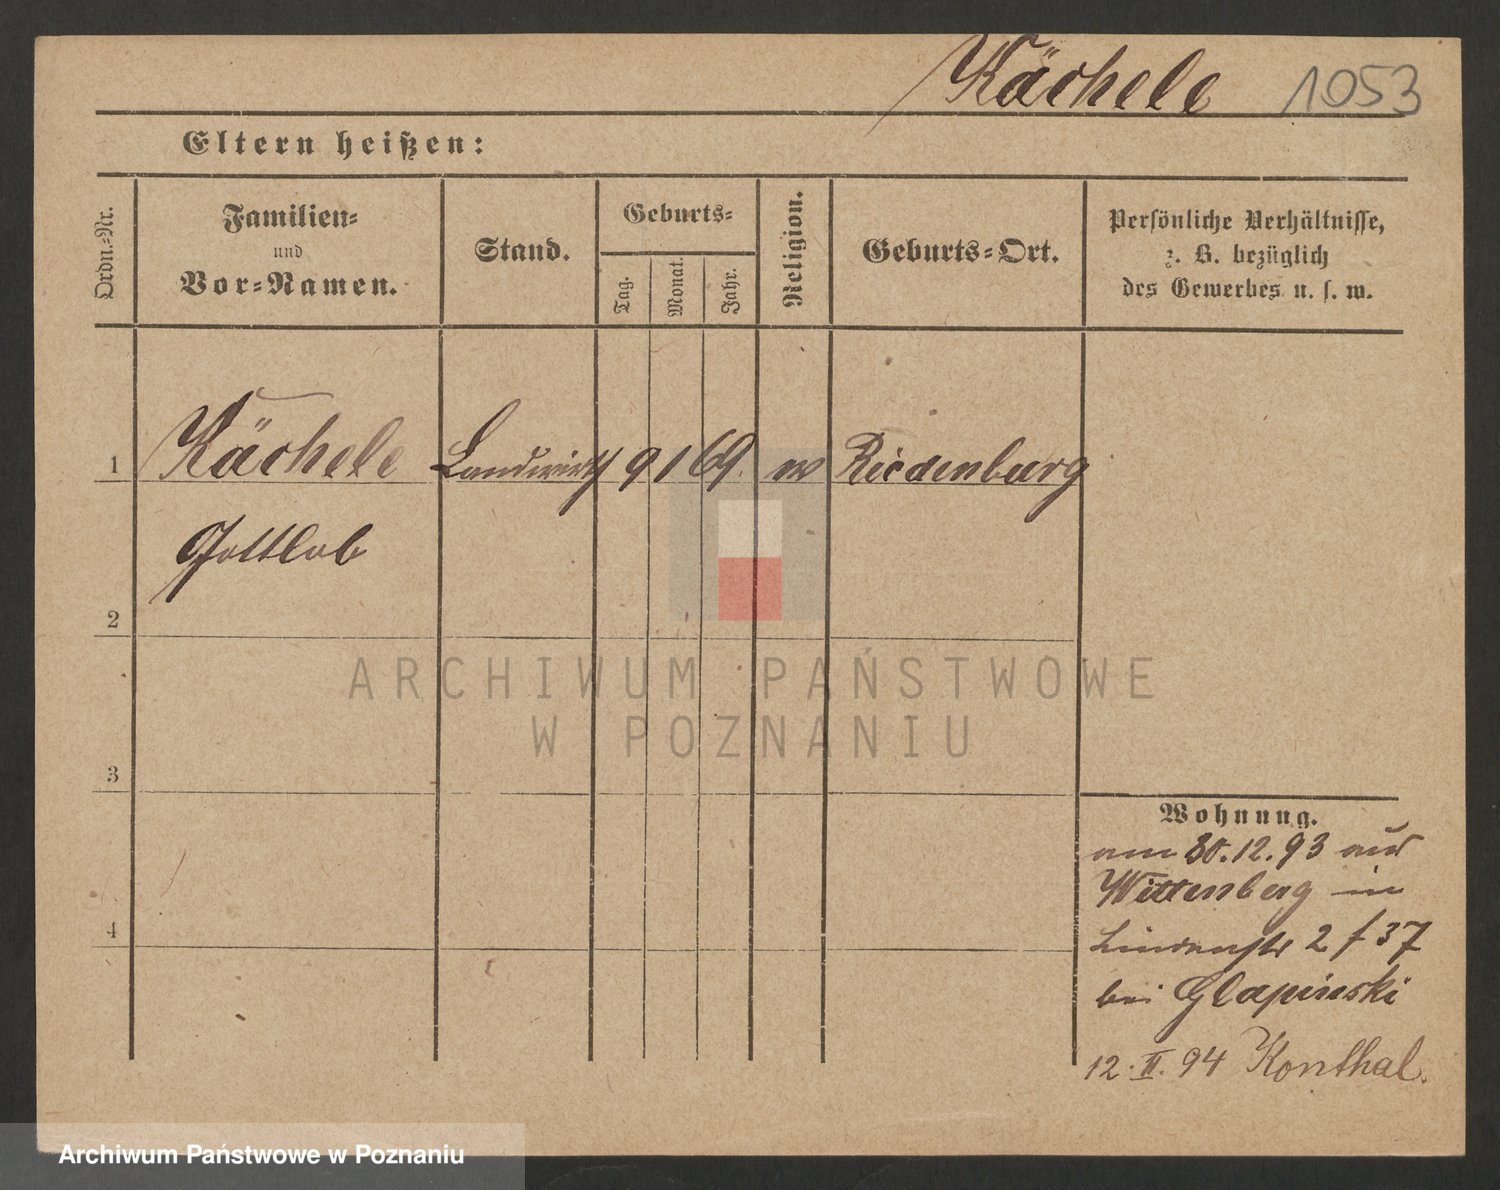 Kächele 1053
Eltern heißen:
Ordn.-Nr.
Familien-
und
Vor-Namen.
Stand.
Geburts-
Tag.
Monat.
Jahr.
Religion.
Geburts-Ort.
Persönliche Verhältnisse,
z. B. bezüglich
des Gewerbes u. s. w.
1 Kächele Landwirth 9 1 69. Riedenburg
Gottlob
2
ARCHIWUM PAŃSTWOWE
W POZNANIU
3
Wohnung.
am 30.12.93 aus
Wittenberg in
4
Lindenstr 2 f 37
bei Glapinski
12. II. 94 Konthal.
Archiwum Państwowe w Poznaniu